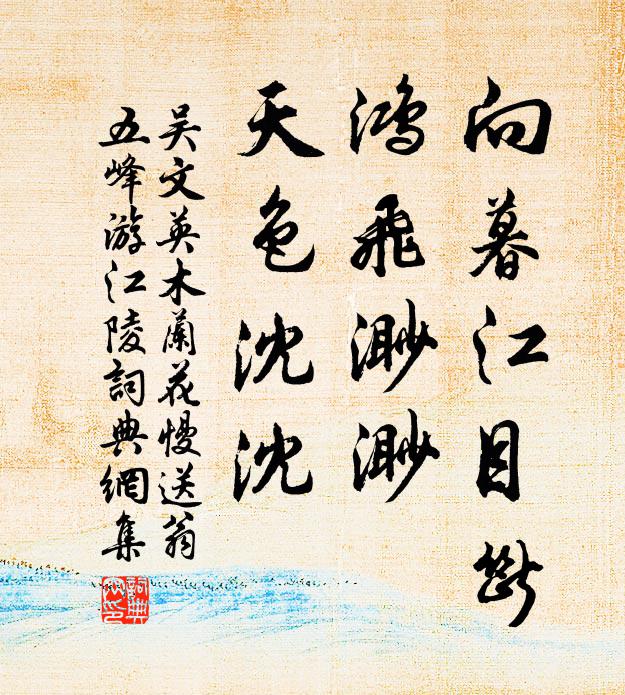 向暮江目斷
鴻飛渺渺
天色沈沈
吴文英木蘭花慢送翁
五峰游江陵詞典網集